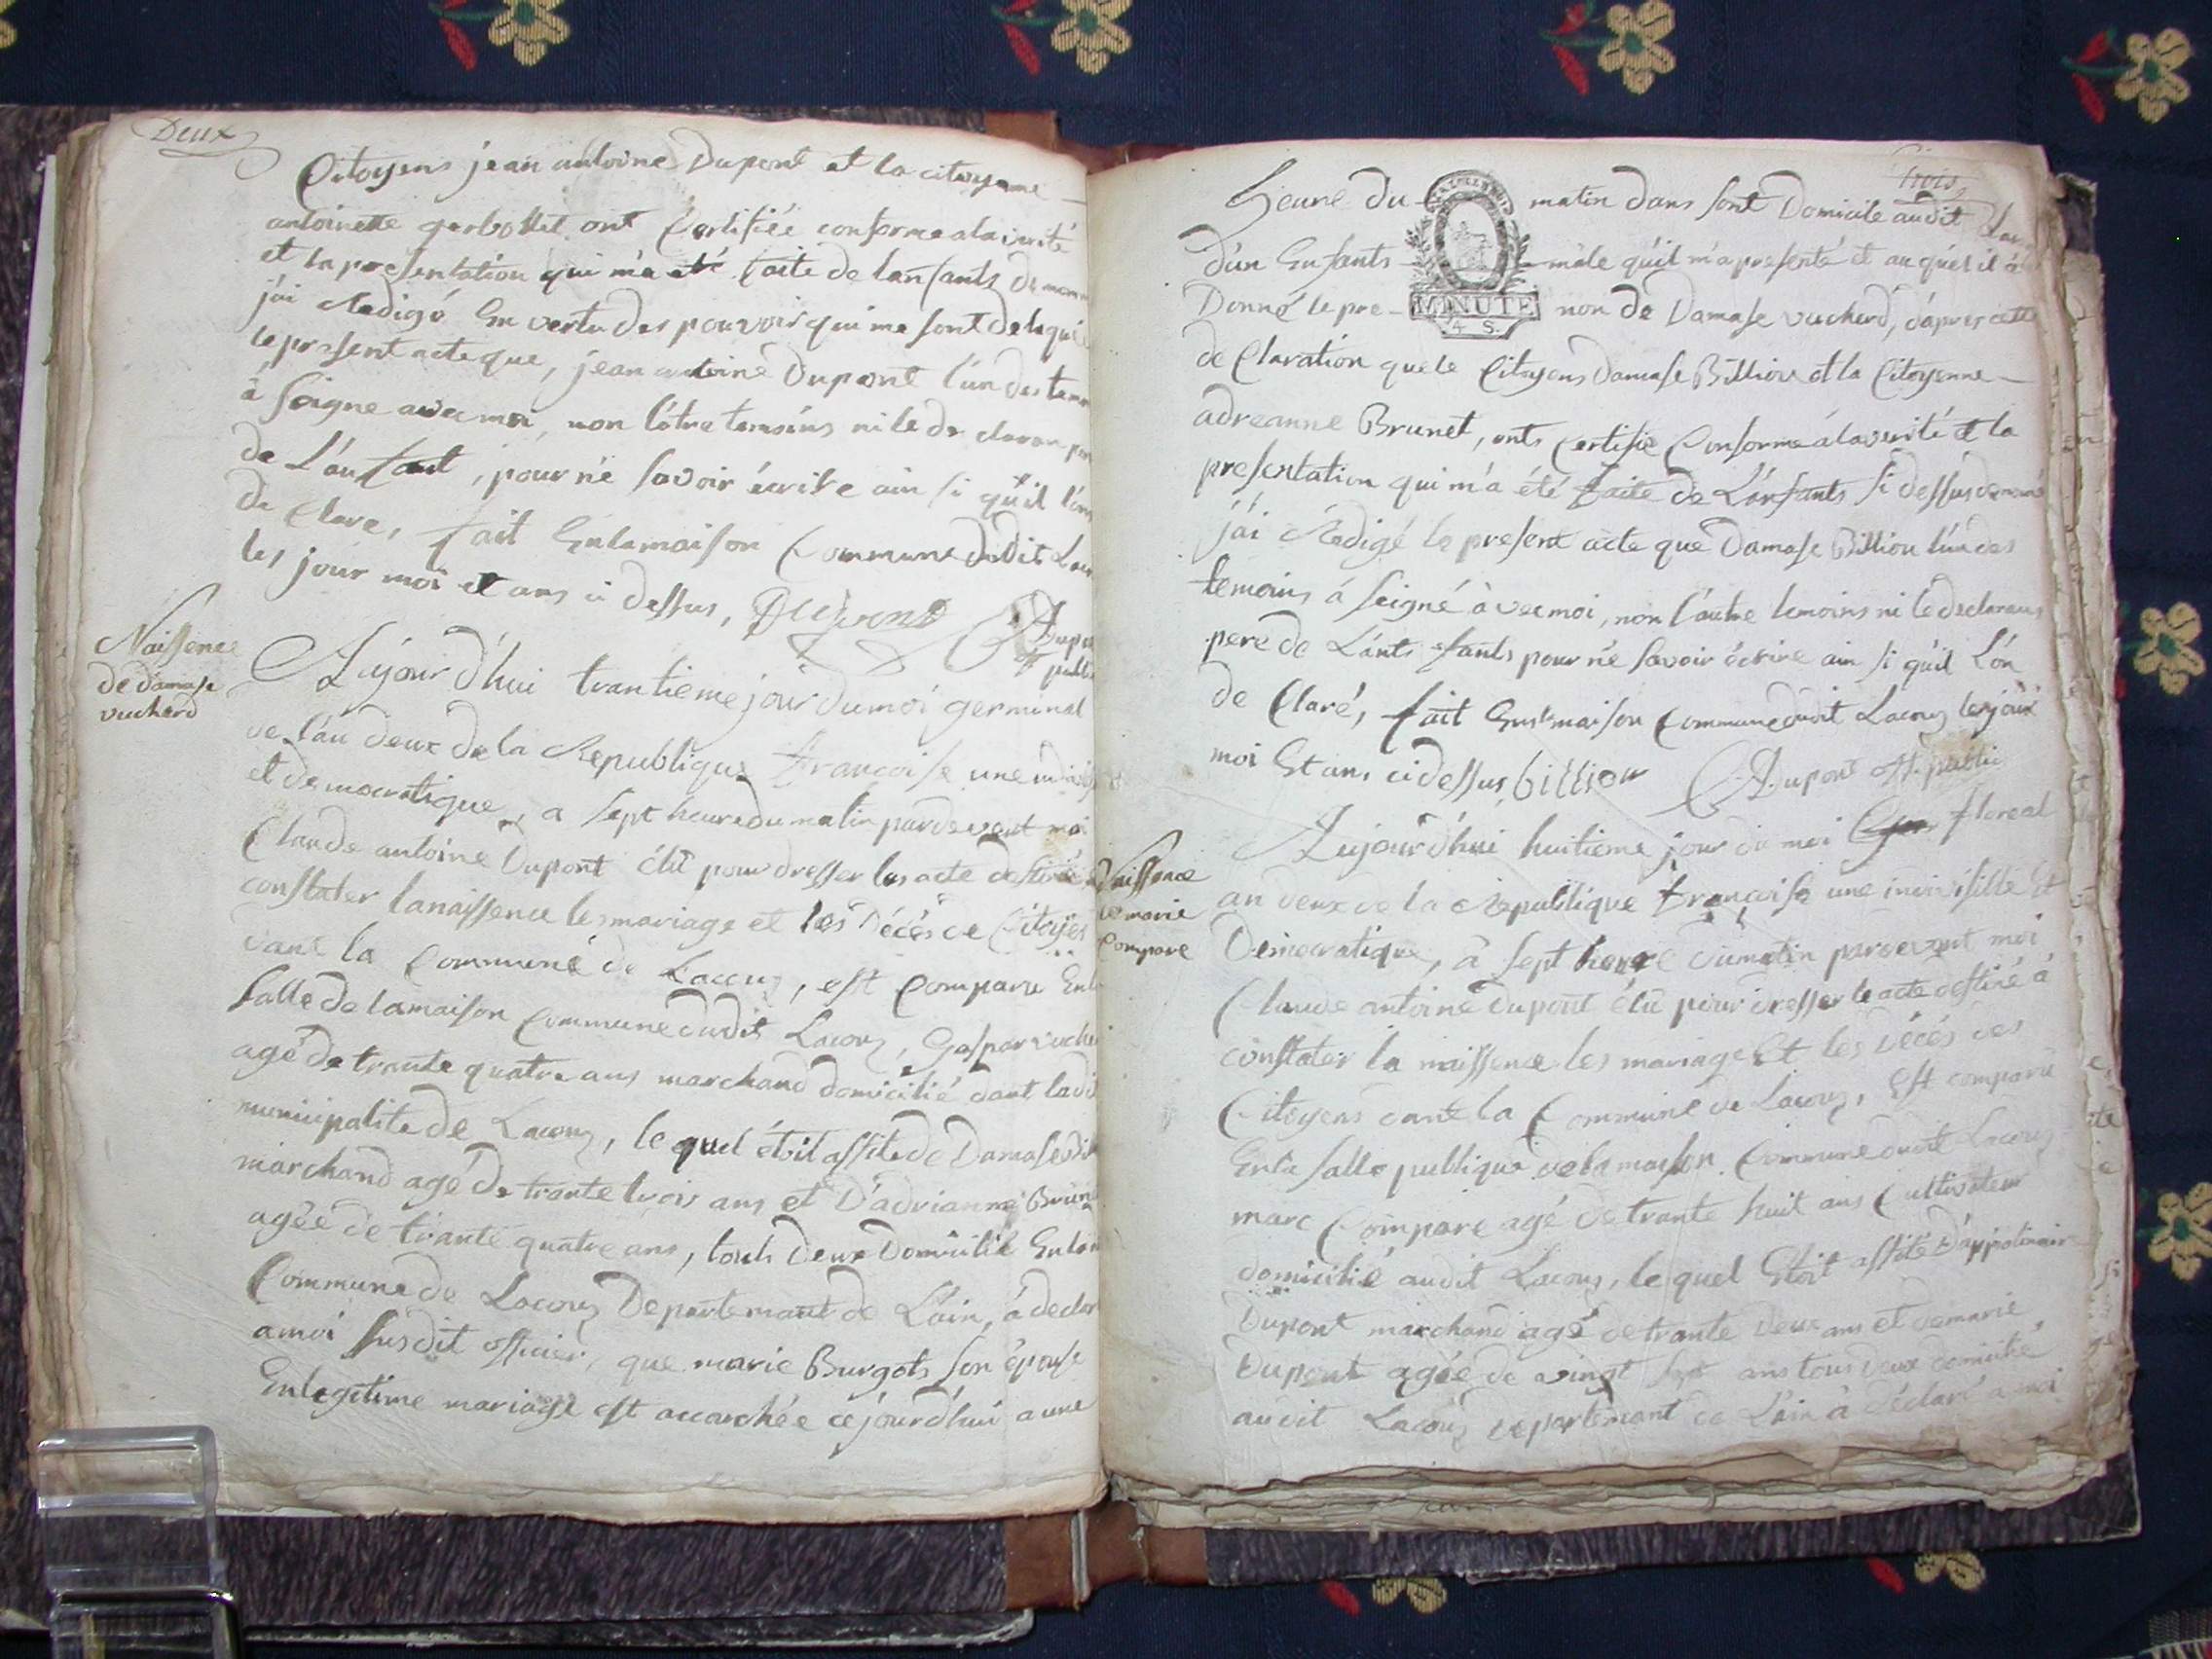 Deux
Citoyens jean antoine Dupont et la citoyenne
antoinette ont Certifiée conforme ala verité
et la presentation qui m'a eté faite de lanfants
j'ai Redigé En vertu des pouvoir qui me sont
le present acte que, jean antoine Dupont l'un des
à Soigne avec moi, non l'otre temoins ni le de claran
de L'an fant, pour né Savoir écrire ain si qu'il l'on
de Clare, fait En la maison Commune dudit
les jour moi et ans ci dessus, Dupont
Naissence
de damase
vuchard
Aujour d'hui trantieme jour du moi germinal
de l'an deux de la Republique françoise une
et democratique, a sept heure du matin pardevant moi
Claude antoine Dupont élu pour dresser les acte destiné
constater la naissence les mariage et les décés de Citoyes
dant la Commune de Lacoux, est Comparu
salle de la maison Commune dudit Lacoux, Gaspar
agé de trante quatre ans marchand domicilié dant
municipalite de Lacoux, le quel étoit assité de Damase
marchand agé de trante trois ans et D'adrianne
agée de trante quatre ans, touts deux Domicilié
Commune de Lacoux Departemant de L'ain, à
a moi susdit officier, que marie Burgots son épouse
En legetime mariage est accouchée ce jourd'hui a une
trois
heure du matin dans sont Domicile audit
d'un Enfants mâle qu'il m'a presenté et au quel il à
Donné le pre- non de Damase vuchard, d'apres cette
MINUTE
4 S.
de Claration que le Citoyens Damase Billion et la Citoyenne
adreanne Brunet, onts Certifié Conforme à la verité et la
presentation qui m'a été faite de L'anfants si dessus
j'ai Redigé le present acte que Damase Billion l'un des
temoins à Seigné àvec moi, non l'autre temoins ni le declarans
pere de L'ants fants pour né savoir écrire ain si qu'il L'on
de Claré, fait En la maison Commune dudit Lacoux les jour
moi Et ans ci dessus, billion Dupont off. public
Naissence
de marie
Compare
Aujourd'hui huitieme jour du moi floreal
an deux de la Republique françoise une indivisille Et
Democratique, à sept heure du matin pardevant moi
Claude antoine Dupont élu pour dresser le acte destiné à
constater la naissence les mariage Et les décés des
Citoyens dant la Commune de Lacoux, Est comparu
En la salle publique de la maison Commune dudit Lacoux
marc Compare agé de trante huit ans Cultivateur
domicilié audit Lacoux, le quel Etoit assité d'appolinaire
Dupont marchand agé de trante deux ans et de marie
Dupont agée de vingt sept ans tous deux domicilié
audit Lacoux departemant de L'ain à déclaré a moi